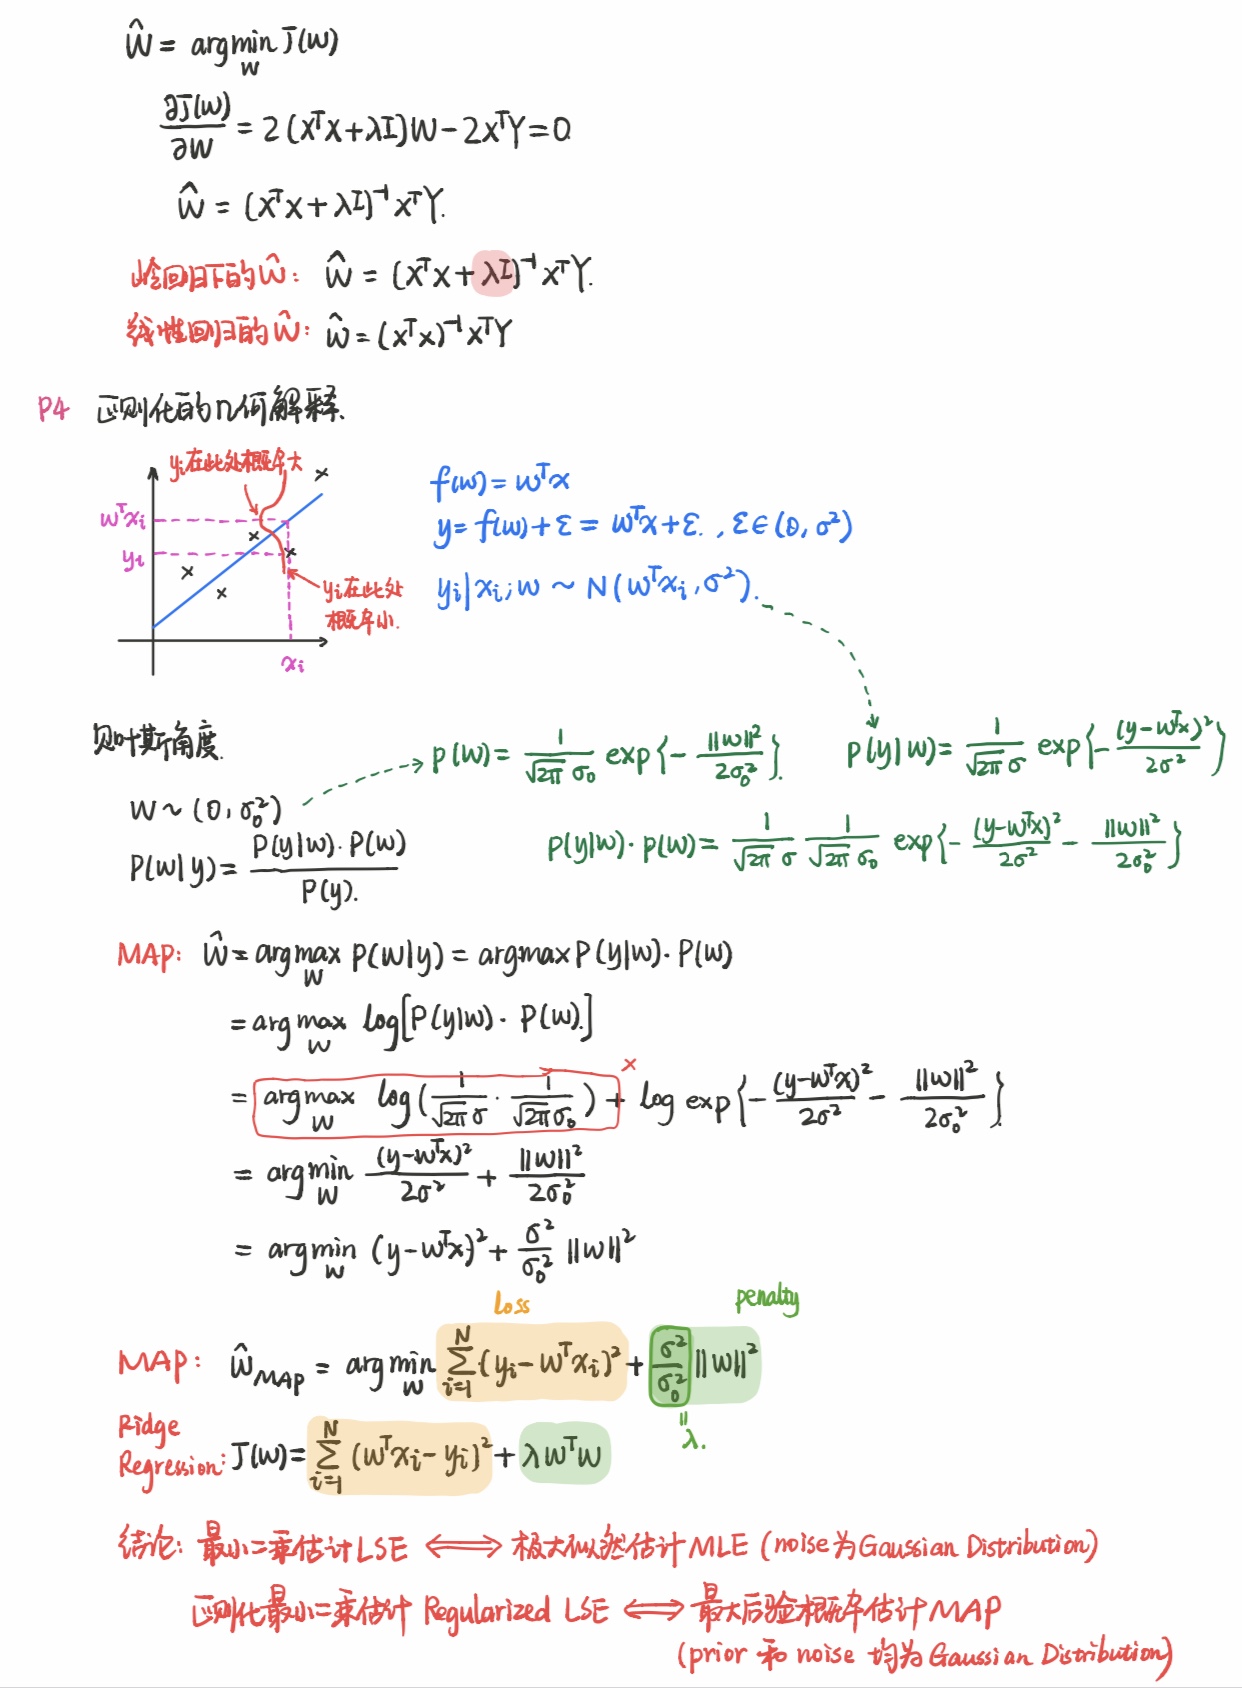 Ŵ = argmin J(W)
W
∂J(W)/∂W = 2(XᵀX+λI)W − 2XᵀY = 0
Ŵ = (XᵀX + λI)⁻¹XᵀY.
岭回归的Ŵ: Ŵ = (XᵀX + λI)⁻¹XᵀY.
线性回归的Ŵ: Ŵ = (XᵀX)⁻¹XᵀY
P4 正则化的几何解释.
yi在此处概率大
wᵀxi
yi
yi在此处
概率小.
xi
f(w) = wᵀx
y = f(w) + ε = wᵀx + ε. , ε∈(0, σ²)
yi|xi;w ~ N(wᵀxi, σ²).
贝叶斯角度.
p(w) = 1/(√2π σ₀) exp{− ||w||²/2σ₀²}.
p(y|w) = 1/(√2π σ) exp{− (y−wᵀx)²/2σ²}
W ~ (0, σ₀²)
P(w|y) = P(y|w)·P(w)/P(y).
P(y|w)·p(w) = 1/(√2π σ) 1/(√2π σ₀) exp{− (y−wᵀx)²/2σ² − ||w||²/2σ₀²}
MAP: Ŵ = argmax P(W|y) = argmax P(y|w)·P(w)
W
= argmax log[P(y|w)·P(w).]
W
= argmax log(1/(√2π σ) · 1/(√2π σ₀)) + log exp{− (y−wᵀx)²/2σ² − ||w||²/2σ₀²}
W
×
= argmin (y−wᵀx)²/2σ² + ||w||²/2σ₀²
W
= argmin (y−wᵀx)² + σ²/σ₀² ||w||²
W
loss
penalty
MAP: Ŵ_MAP = argmin ∑ᵢ₌₁ᴺ (yi − wᵀxi)² + σ²/σ₀² ||w||²
W
=
λ.
Ridge
Regression: J(w) = ∑ᵢ₌₁ᴺ (wᵀxi − yi)² + λwᵀw
结论: 最小二乘估计LSE ⟺ 极大似然估计MLE (noise为Gaussian Distribution)
正则化最小二乘估计 Regularized LSE ⟺ 最大后验概率估计MAP
(prior 和 noise 均为Gaussian Distribution)